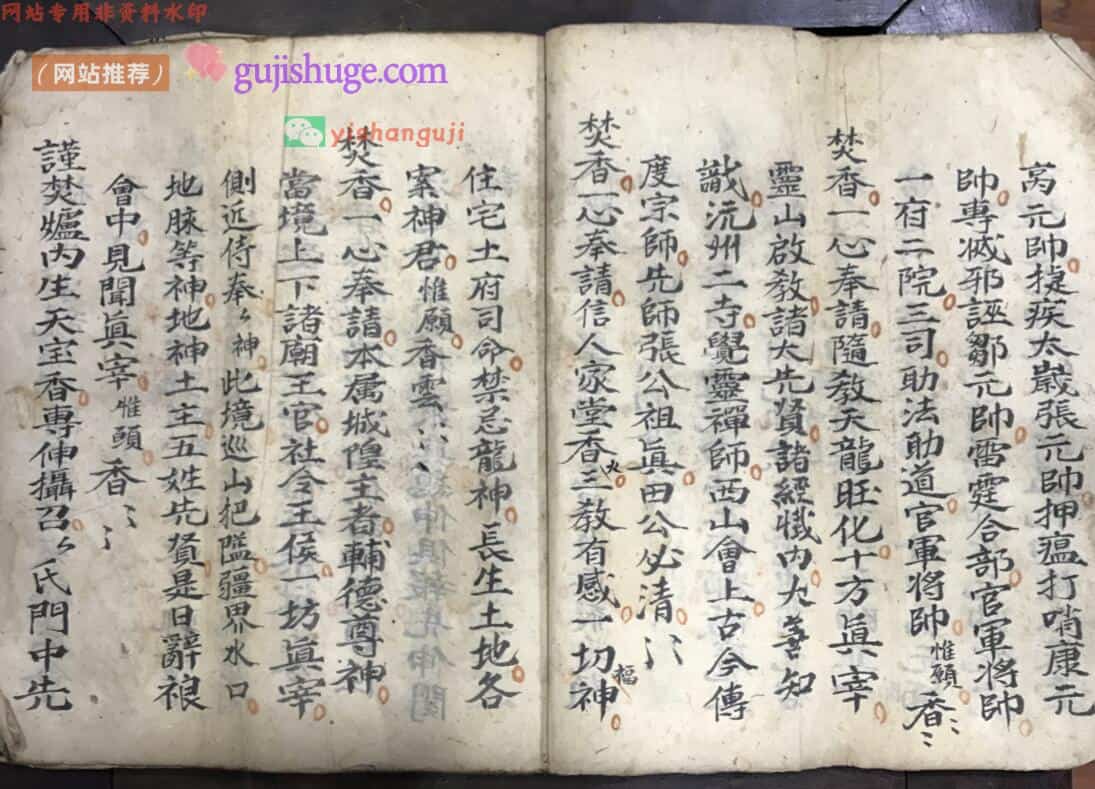 网站专用非资料水印
（网站推荐） gujishuge.com
yishanguji
髙元帥捷疾太歲張元帥押瘟打哨康元
帥專滅邪誣鄒元帥雷霆合部官軍將帥
一府二院三司助法助道官軍將帥惟願香〻
焚香一心奉請隨教天龍旺化十方眞宰
靈山啟教諸大先賢諸經懺內大善知
識沅州二寺覺靈禪師西山會上古今傳
度宗師先師張公祖眞田公必清〻
焚香一心奉請信人家堂香火三教有感一切福神
住宅土府司命禁忌龍神長生土地各
案神君惟願香雲〻
焚香一心奉請本属城隍主者輔德尊神
當境上下諸廟王官社令王侯一坊眞宰
側近侍奉〻神此境巡山把隘疆界水口
地脉等神地神土主五姓先賢是日辭祿
會中見聞眞宰惟願香〻
謹焚爐內生天宝香專伸攝召〻氏門中先